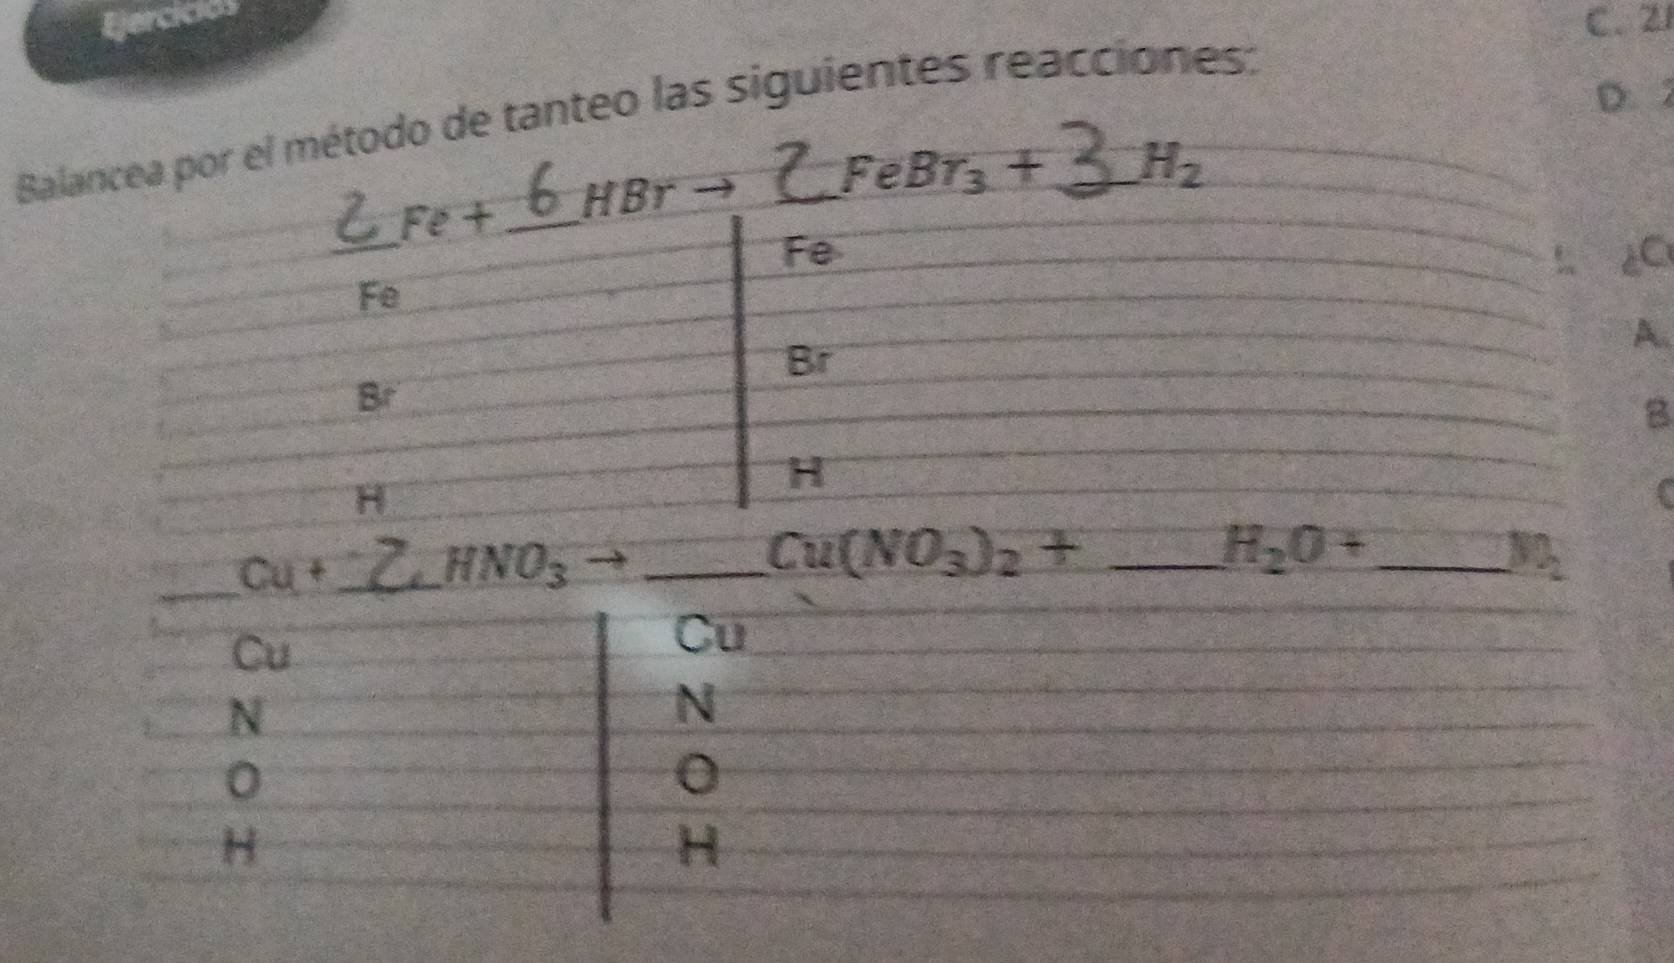 Ejercicios
C. 2
D.
Balancea por el método de tanteo las siguientes reacciones:
2 Fe + 6 HBr → 2 FeBr₃ + 3 H₂
Fe Fe
¿C
A.
Br Br
B
H H
___Cu + 2 HNO₃ → ___Cu(NO₃)₂ + ___H₂O + ___NO₂
Cu Cu
N N
O O
H H